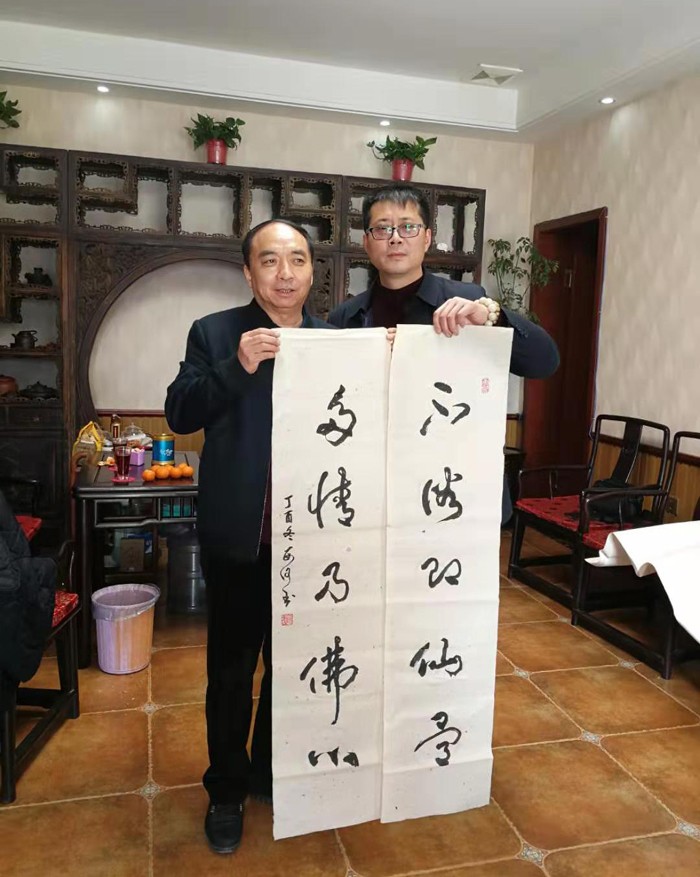 不俗即仙骨
多情乃佛心
丁酉冬